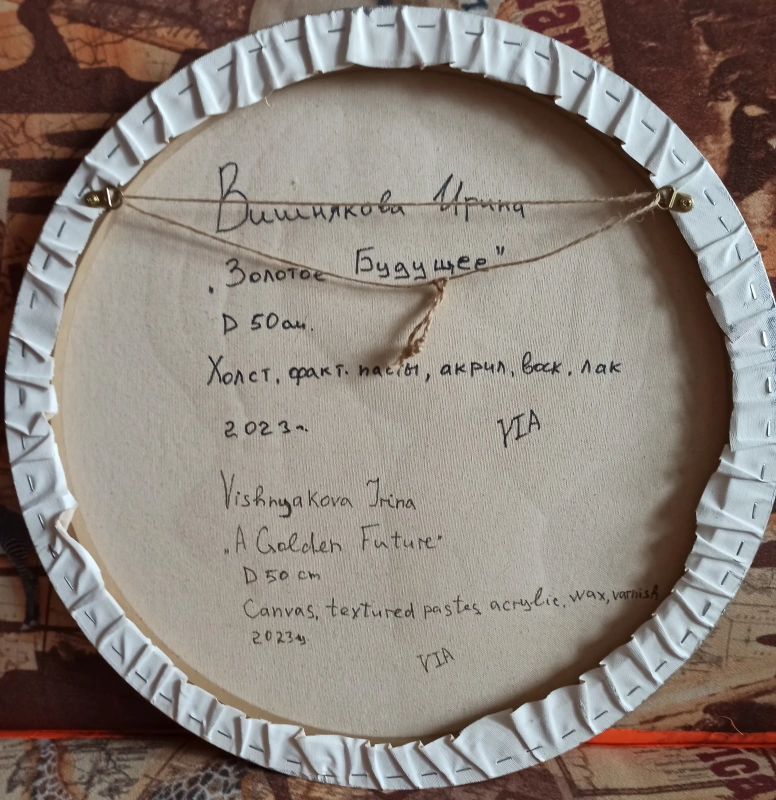 Вишнякова Ирина
„Золотое Будущее"
D 50см.
Холст, факт. пасты, акрил, воск, лак
2023г.
VIA
Vishnyakova Irina
„A Golden Future"
D 50 cm
Canvas, textured pastes, acrylic, wax, varnish
2023y
VIA